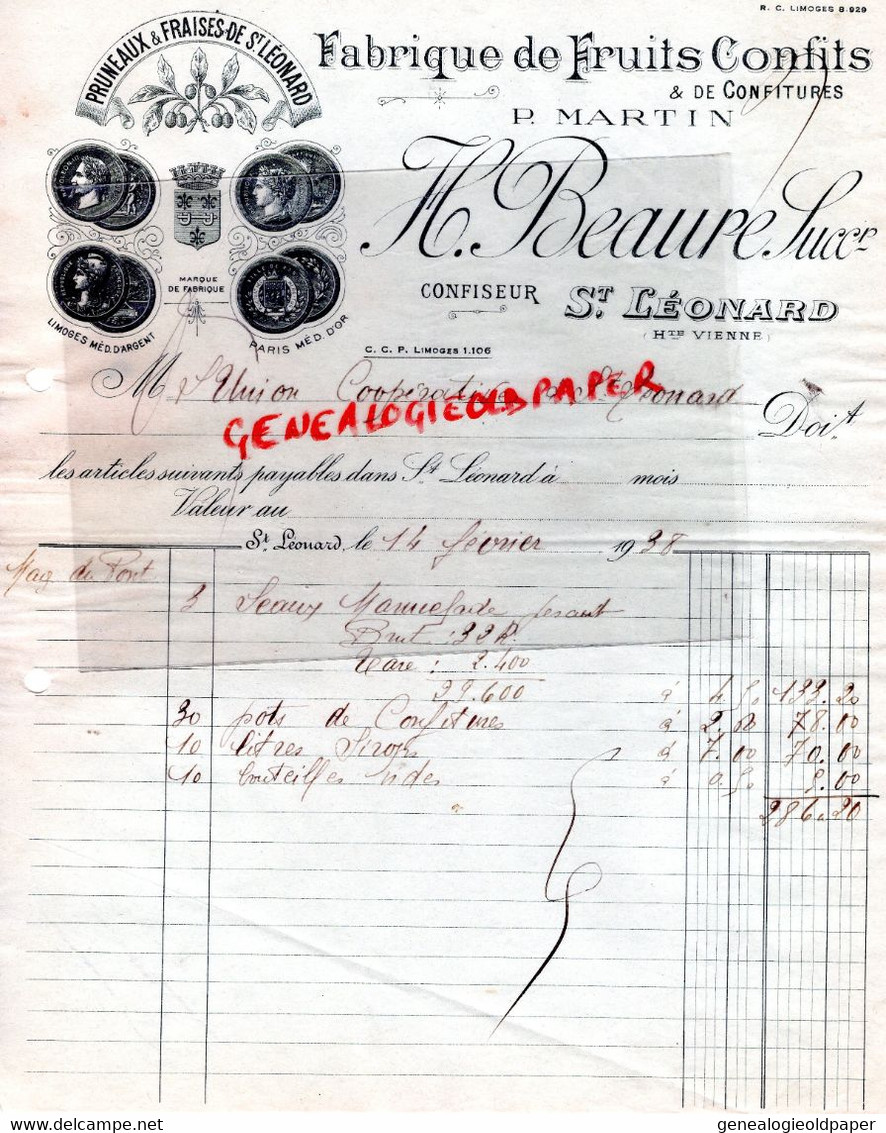 R. C. LIMOGES 8.929
PRUNEAUX & FRAISES DE ST LÉONARD
Fabrique de Fruits Confits
& DE CONFITURES
P. MARTIN
H. Beaure Succr
MARQUE
DE FABRIQUE
CONFISEUR
ST. LÉONARD
(HTE VIENNE)
LIMOGES MÉD. D'ARGENT
PARIS MÉD. D'OR
C. C. P. LIMOGES 1.106
M L'Union Coopérative de St Léonard
GENEALOGIEOLDPAPER
Doit
les articles suivants payables dans St Léonard à mois
Valeur au
St. Léonard, le 14 février 1938
Mag du Pont
3 Seaux Marmelade pesant
Brut : 32 K.
Tare : 2.400
29.600 à 4.50 133.20
30 pots de Confitures à 2.60 78.00
10 litres Sirops à 7.00 70.00
10 bouteilles vides à 0.50 5.00
286.20
delcampe.net
genealogieoldpaper